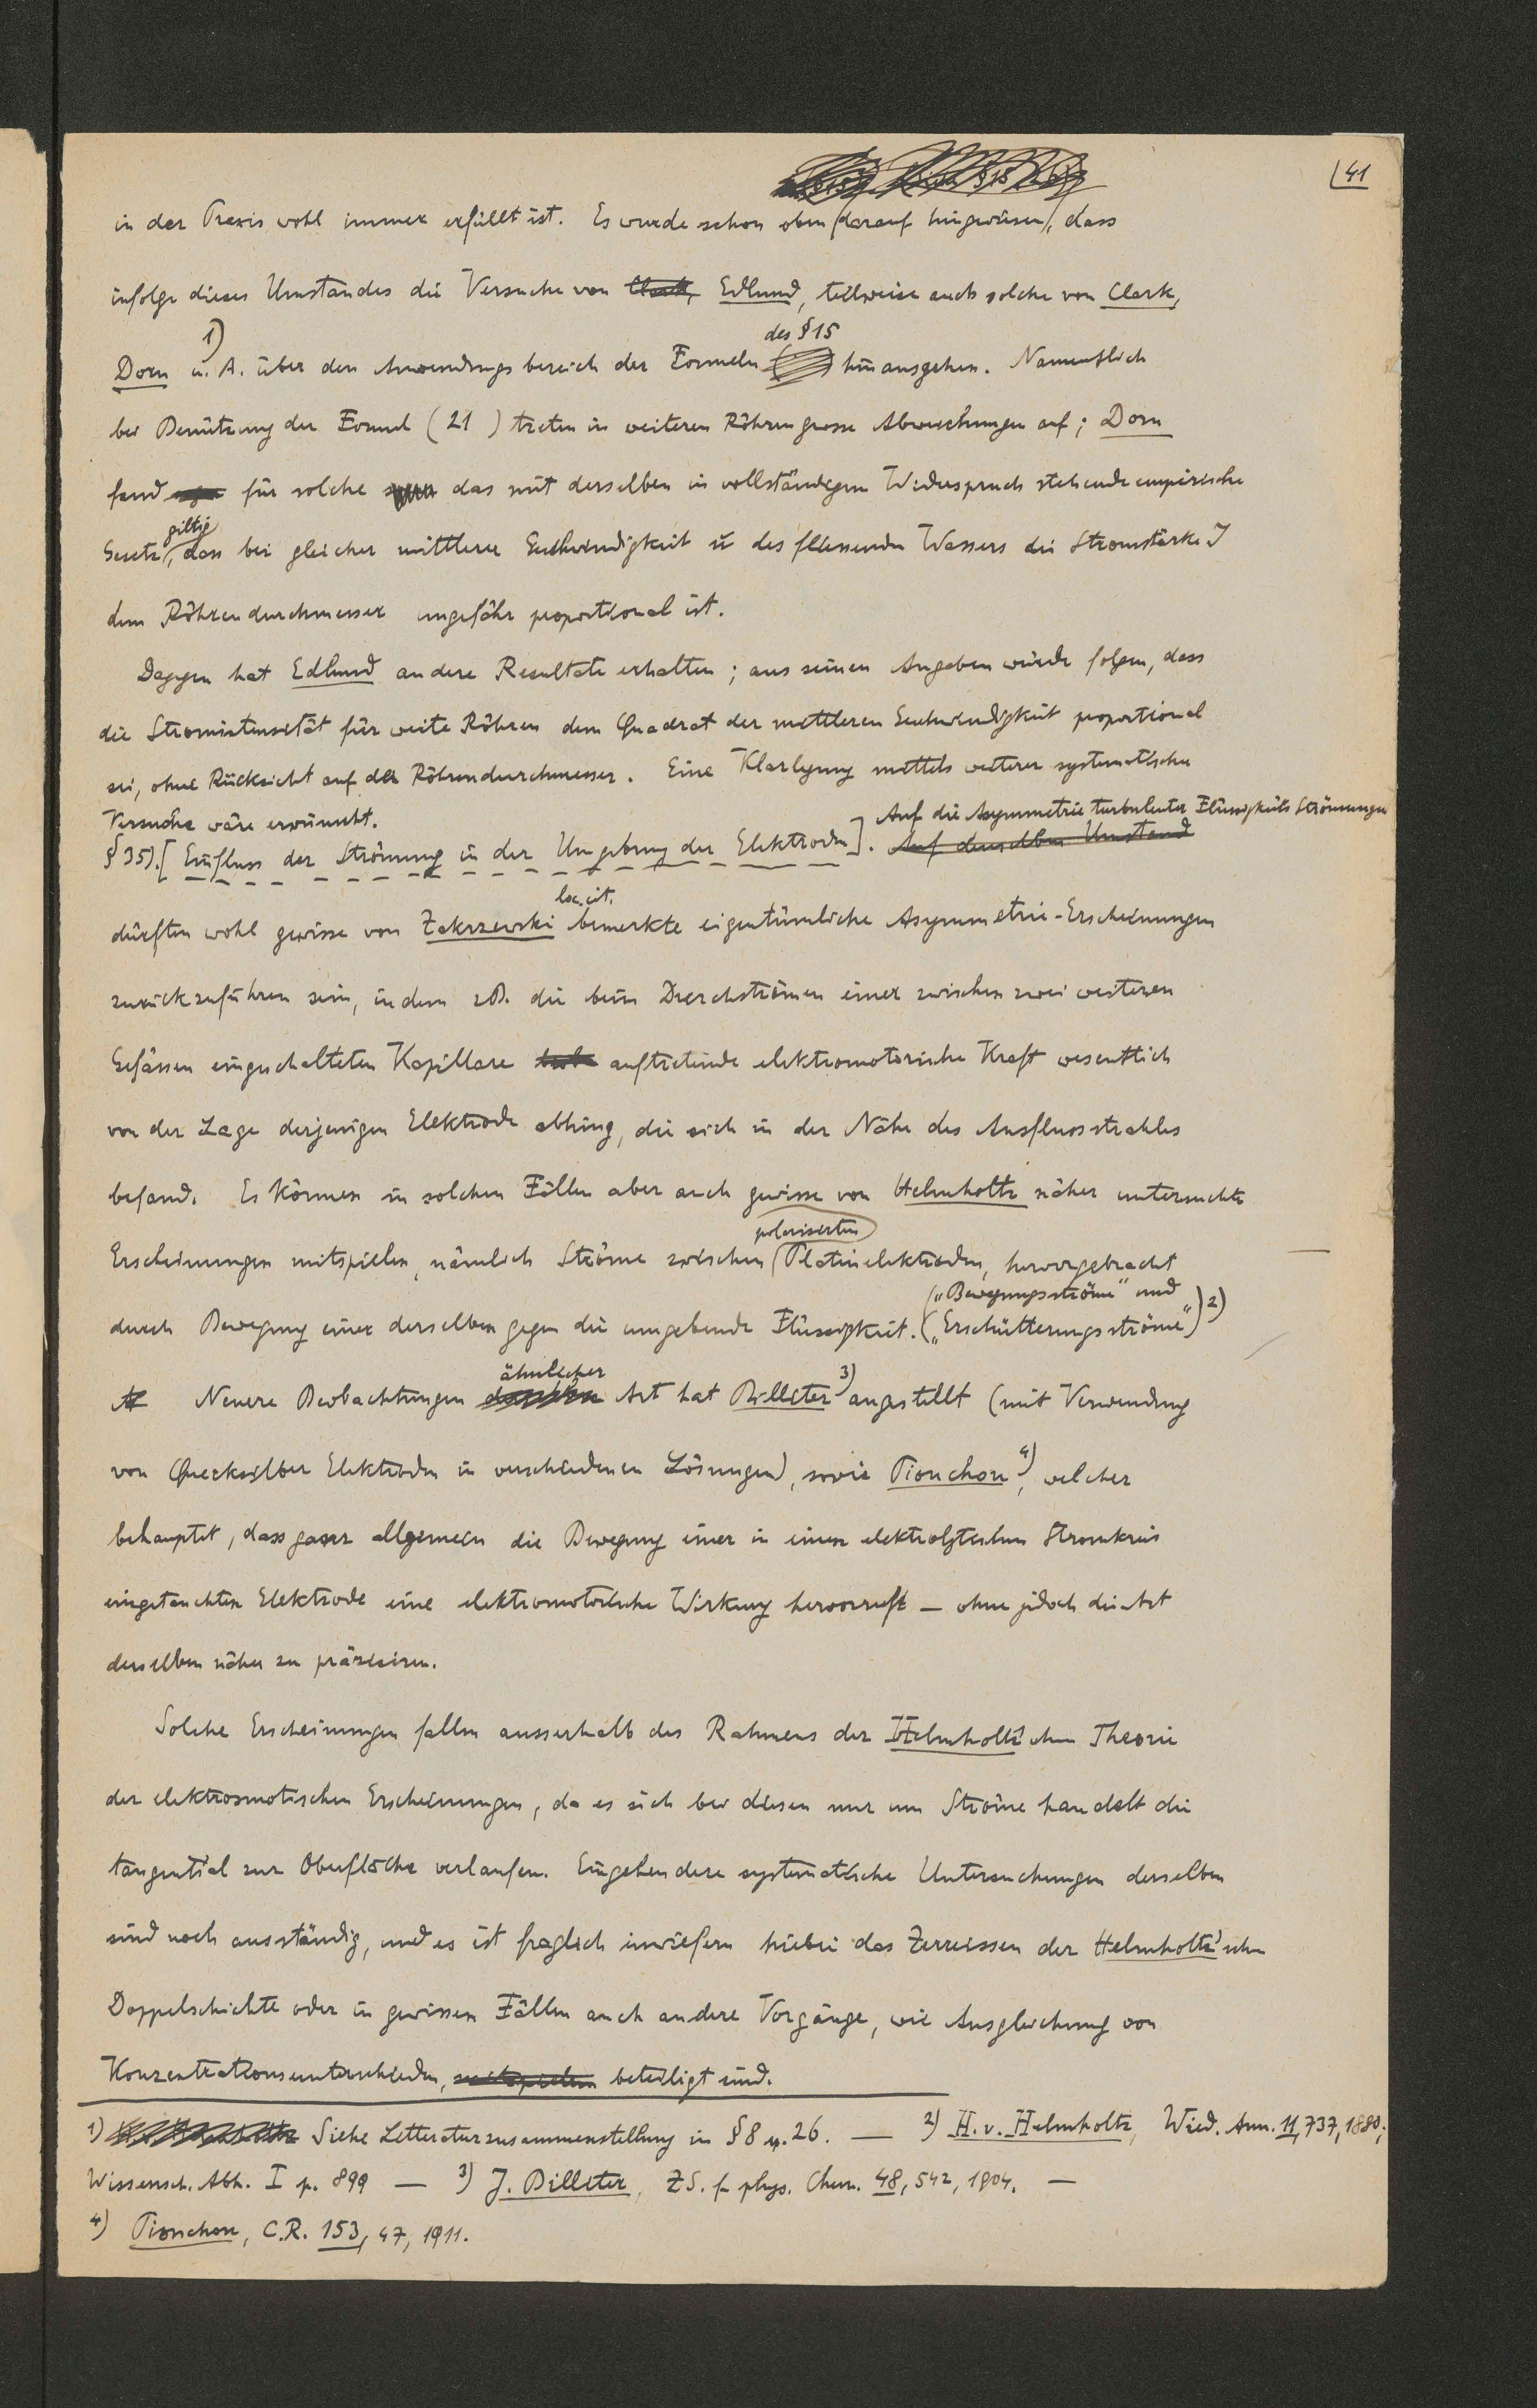 41
in der Praxis wohl immer erfüllt ist. Es wurde schon oben (darauf hingewiesen), dass
infolge dieses Umstandes die Versuche von Clark, Edlund, teilweise auch solche von Clark,
des §15
Dorn u. A. 1) über den Anwendungsbereich der Formeln hinausgehen. Namentlich
bei Benützung der Formel (21) treten in weiteren Röhren grosse Abweichungen auf; Dorn
fand für solche das mit derselben in vollständigem Widerspruch stehende empirische
giltig
Gesetz, dass bei gleicher mittlerer Geschwindigkeit ū des fliessenden Wassers die Stromstärke J
dem Röhrendurchmesser ungefähr proportional ist.
Dagegen hat Edlund andere Resultate erhalten; aus seinen Angaben würde folgen, dass
die Stromintensität für weite Röhren dem Quadrat der mittleren Geschwindigkeit proportional
sei, ohne Rücksicht auf den Röhrendurchmesser. Eine Klarlegung mittels weiterer systematischer
Versuche wäre erwünscht.
Auf die Asymmetrie turbulenter Flüssigkeits Strömungen
§35). [Einfluss der Strömung in der Umgebung der Elektroden]. Auf denselben Umstand
loc. cit.
dürften wohl gewisse von Zakrzewski bemerkte eigentümliche Asymmetrie-Erscheinungen
zurückzuführen sein, indem z.B. die beim Durchströmen einer zwischen zwei weiteren
Gefässen eingeschalteten Kapillare auftretende elektromotorische Kraft wesentlich
von der Lage derjenigen Elektrode abhing, die sich in der Nähe des Ausflussstrahles
befand. Es können in solchen Fällen aber auch gewisse von Helmholtz näher untersuchte
polarisierten
Erscheinungen mitspielen, nämlich Ströme zwischen Platinelektroden, hervorgebracht
("Bewegungsströme" und
durch Bewegung einer derselben gegen die umgebende Flüssigkeit. "Erschütterungsströme") 2)
ähnlicher
Neuere Beobachtungen Art hat Billiter 3) angestellt (mit Verwendung
von Quecksilber Elektroden in verschiedenen Lösungen), sowie Pionchon 4), welcher
behauptet, dass ganz allgemein die Bewegung einer in einen elektrolytischen Stromkreis
eingetauchten Elektrode eine elektromotorische Wirkung hervorruft — ohne jedoch die Art
derselben näher zu präzisiren.
Solche Erscheinungen fallen ausserhalb des Rahmens der Helmholtz'schen Theorie
der elektrosmotischen Erscheinungen, da es sich bei diesen nur um Ströme handelt die
tangential zur Oberfläche verlaufen. Eingehendere systematische Untersuchungen derselben
sind noch ausständig, und es ist fraglich inwiefern hiebei das Zerreissen der Helmholtz'schen
Doppelschichte oder in gewissen Fällen auch andere Vorgänge, wie Ausgleichung von
Konzentrationsunterschieden, mitspielen beteiligt sind.
1) Siehe Litteraturzusammenstellung in §8 u. 26. — 2) H. v. Helmholtz, Wied. Ann. 11, 737, 1880;
Wissensch. Abh. I p. 899 — 3) J. Billiter, ZS. f. phys. Chem. 48, 542, 1904. —
4) Pionchon, C.R. 153, 47, 1911.